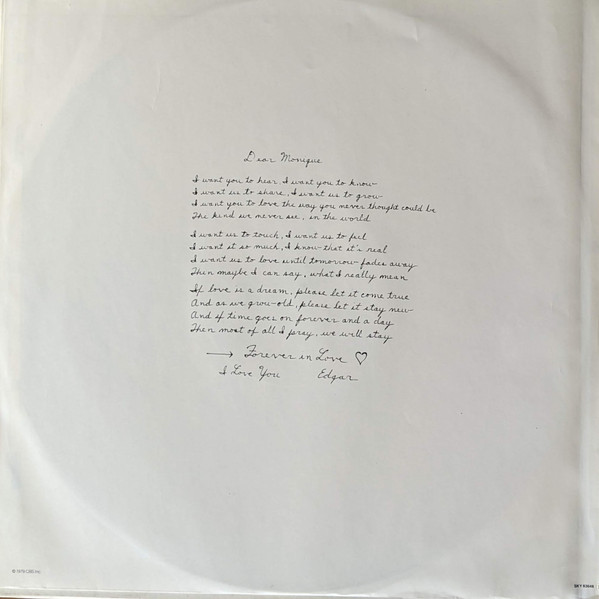 Dear Monique
I want you to hear, I want you to know
I want us to share, I want us to grow
I want you to love the way you never thought could be
The kind we never see, in the world
I want us to touch, I want us to feel
I want it so much, I know that it's real
I want us to love until tomorrow fades away
Then maybe I can say, what I really mean
If love is a dream, please let it come true
And as we grow old, please let it stay new
And if time goes on forever and a day
Then most of all I pray, we will stay
→ Forever in Love ♡
I Love You Edgar
℗ 1979 CBS Inc.